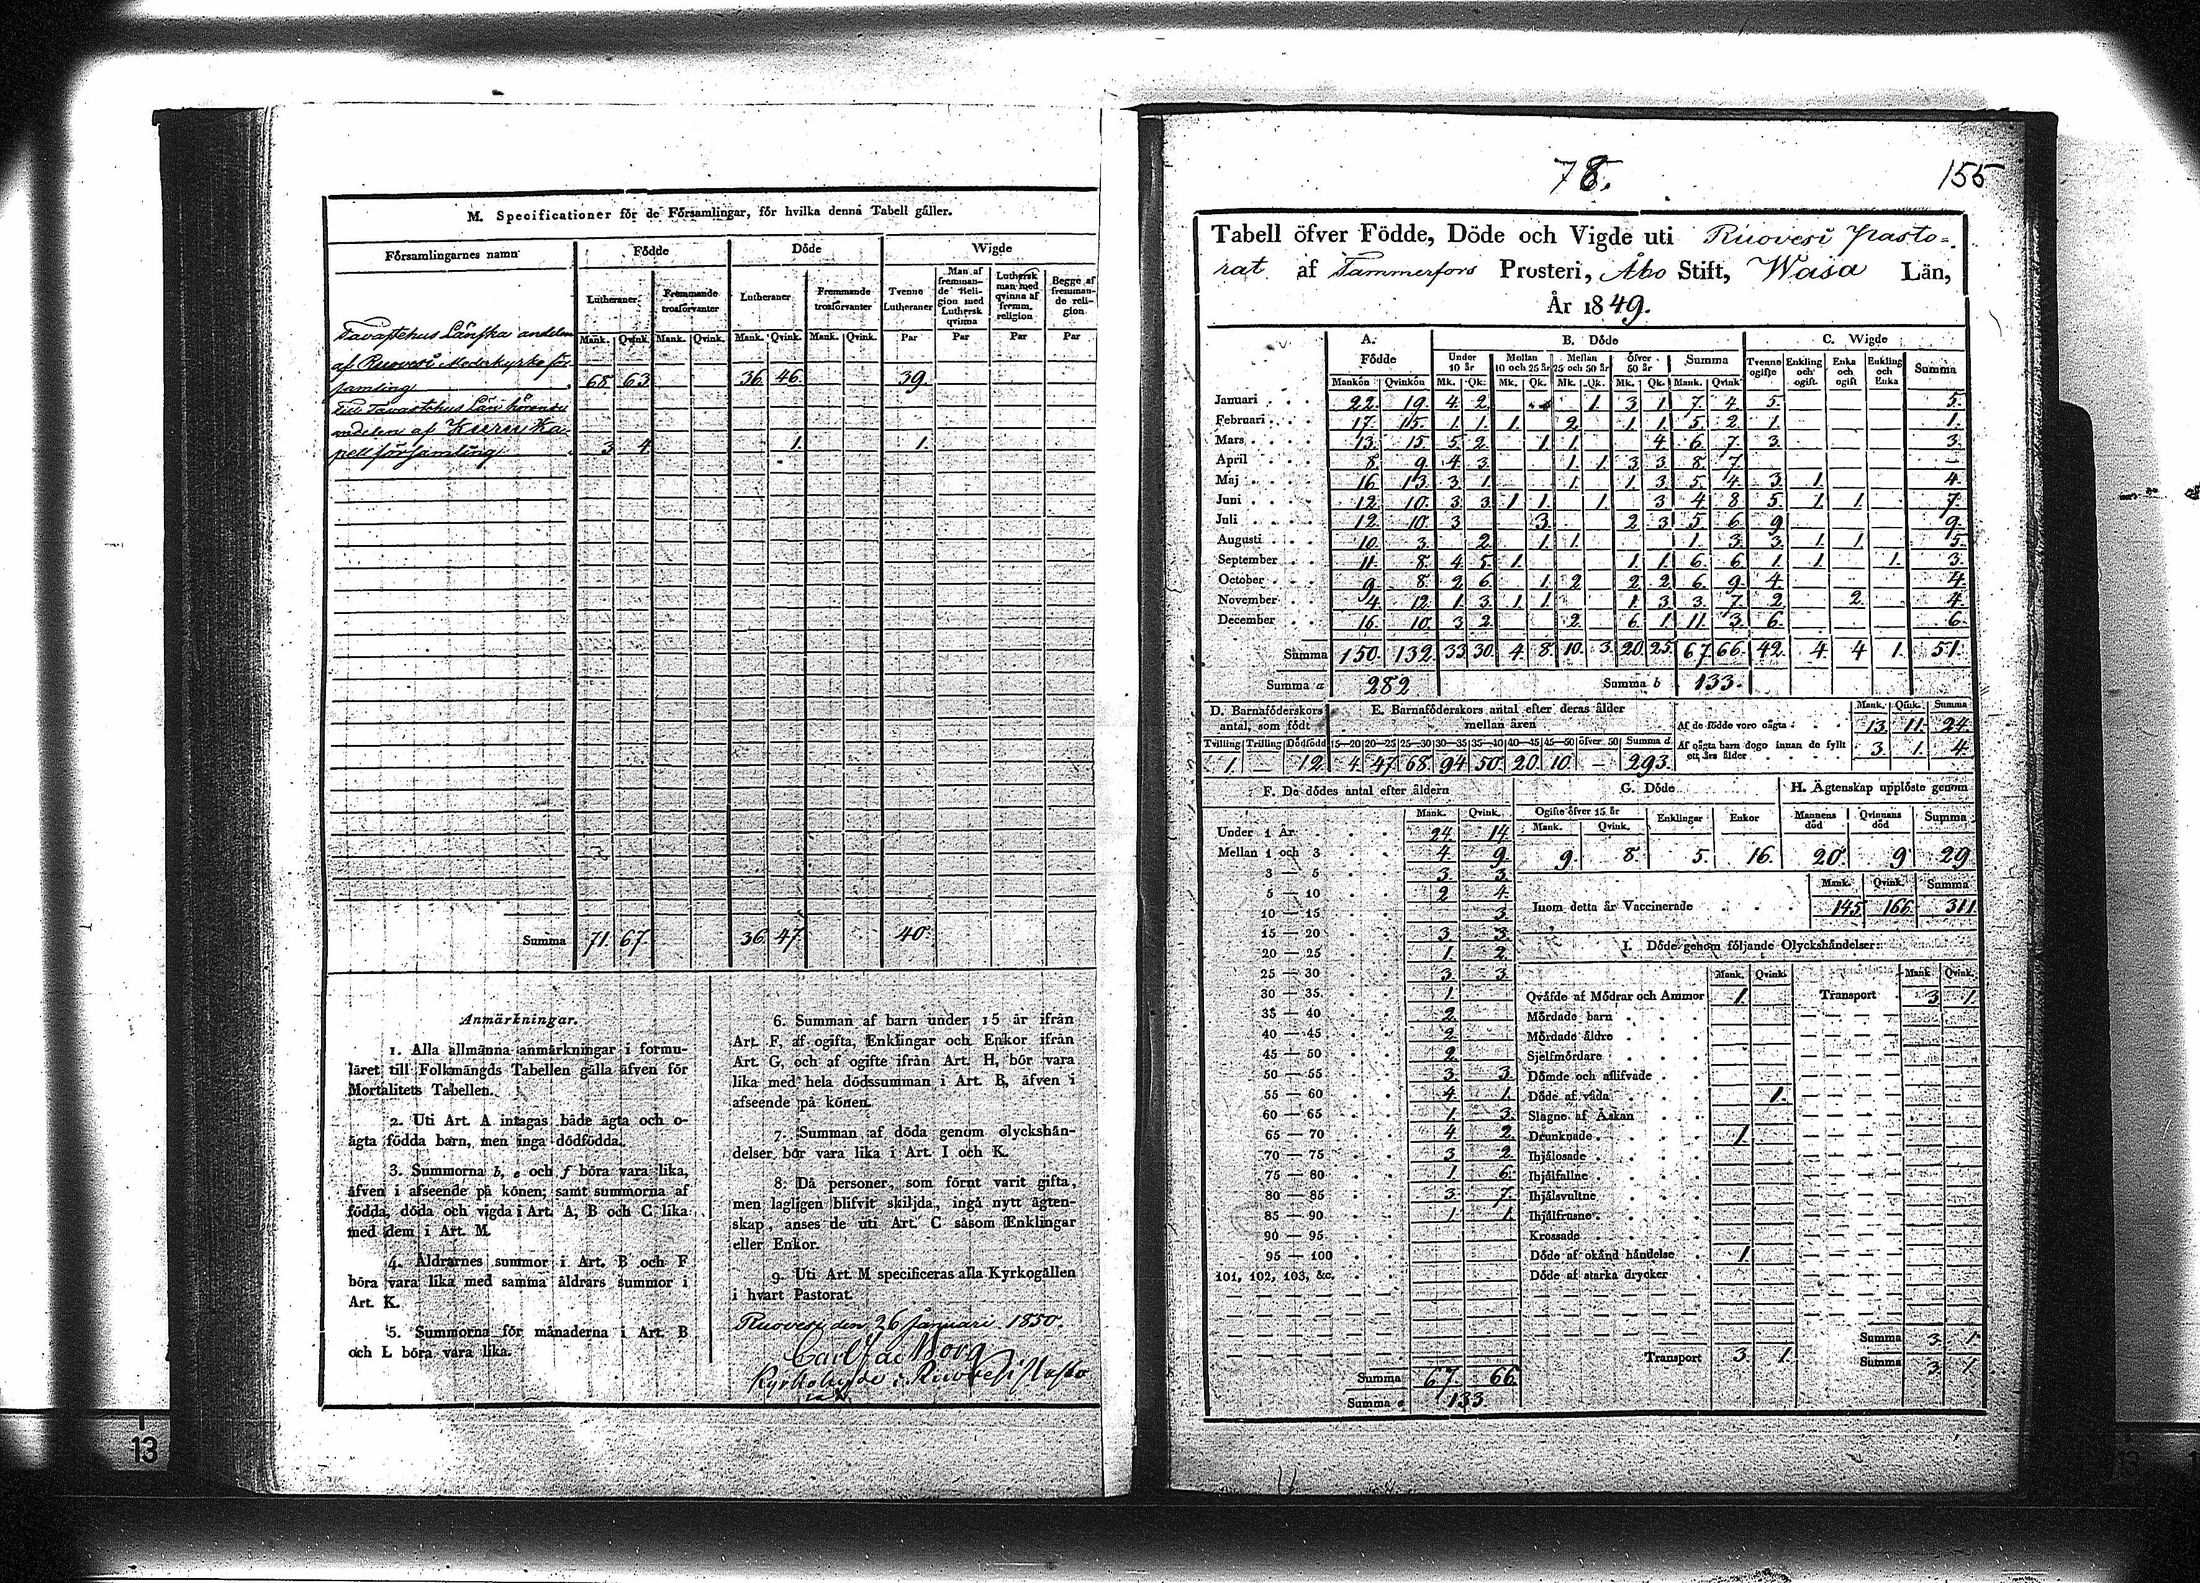 M. Specificationer för de Församlingar, för hvilka denna Tabell gäller.
Församlingarnes namn Födde Döde Wigde
Lutheraner Fremmande trosförvanter Lutheraner Fremmande trosförvanter Tvenne Lutheraner Man af fremmande Religion med Luthersk qvinna Luthersk man med qvinna af fremm. religion Begge af fremmande religion
Mank. Qvink. Mank. Qvink. Mank. Qvink. Mank. Qvink. Par Par Par Par
Tavastehus Länska andelen
af Ruovesi Moderkyrko för-
samling 68 63 36 46 39
Till Tavastehus Län hörande
andelen af Kuru Ka-
pell församling 3 4 1 1
Summa 71 67 36 47 40
Anmärkningar.
1. Alla allmänna anmärkningar i formu-
läret till Folkmängds Tabellen gälla äfven för
Mortalitets Tabellen.
2. Uti Art. A intagas både ägta och o-
ägta födda barn, men inga dödfödda.
3. Summorna b, e och f böra vara lika,
äfven i afseende på könen; samt summorna af
födda, döda och vigda i Art. A, B och C lika
med dem i Art. M.
4. Åldrarnes summor i Art. B och F
böra vara lika med samma åldrars summor i
Art. K.
5. Summorna för månaderna i Art. B
och L böra vara lika.
6. Summan af barn under 15 år ifrån
Art. F, af ogifta, Enklingar och Enkor ifrån
Art. G, och af ogifte ifrån Art. H, bör vara
lika med hela dödssumman i Art. B, äfven i
afseende på könen.
7. Summan af döda genom olyckshän-
delser bör vara lika i Art. I och K.
8. Då personer, som förut varit gifta,
men lagligen blifvit skiljda, ingå nytt ägten-
skap, anses de uti Art. C såsom Enklingar
eller Enkor.
9. Uti Art. M specificeras alla Kyrkogällen
i hvart Pastorat.
Ruovesi den 26 Januari 1850.
Carl Jac Borg
Kyrkoherde i Ruovesi Pasto
rat
78. 155
Tabell öfver Födde, Döde och Vigde uti Ruovesi Pasto=
rat af Tammerfors Prosteri, Åbo Stift, Wasa Län,
År 1849.
A. Födde B. Döde C. Wigde
Under 10 år Mellan 10 och 25 år Mellan 25 och 50 år öfver 50 år Summa Tvenne ogifte Enkling och ogift Enka och ogift Enkling och Enka Summa
Mankön Qvinkön Mk. Qk. Mk. Qk. Mk. Qk. Mk. Qk. Mank. Qvink.
Januari 22 19 4 2 1 3 1 7 4 5 5
Februari 17 15 1 1 1 2 1 1 5 2 1 1
Mars 13 15 5 2 1 1 4 6 7 3 3
April 8 9 4 3 1 1 3 3 8 7 —
Maj 16 13 3 1 1 1 3 5 4 3 1 4
Juni 12 10 3 3 1 1 1 3 4 8 5 1 1 7
Juli 12 10 3 3 2 3 5 6 9 9
Augusti 10 3 2 1 1 1 3 3 1 1 5
September 11 8 4 5 1 1 1 6 6 1 1 1 3
October 9 8 2 6 1 2 2 2 6 9 4 4
November 4 12 1 3 1 1 1 3 3 7 2 2 4
December 16 10 3 2 2 6 1 11 3 6 6
Summa 150 132 33 30 4 8 10 3 20 25 67 66 42 4 4 1 51
Summa a 282 Summa b 133
D. Barnaföderskors antal, som födt
Tvilling Trilling Dödfödd
1 — 12
E. Barnaföderskors antal efter deras ålder mellan åren
15—20 20—25 25—30 30—35 35—40 40—45 45—50 öfver 50 Summa d
4 47 68 94 50 20 10 — 293
Mank. Qvink. Summa
Af de födde voro oägta 13 11 24
Af oägta barn dogo innan de fyllt ett års ålder 3 1 4
F. De dödes antal efter åldern
Mank. Qvink.
Under 1 År 24 14
Mellan 1 och 3 4 9
3 — 5 3 3
5 — 10 2 4
10 — 15 3
15 — 20 3 3
20 — 25 1 2
25 — 30 3 3
30 — 35 1
35 — 40 2
40 — 45 2
45 — 50 2
50 — 55 3 3
55 — 60 4 1
60 — 65 1 3
65 — 70 4 2
70 — 75 3 2
75 — 80 1 6
80 — 85 3 7
85 — 90 1 1
90 — 95
95 — 100
101, 102, 103, &c.
Summa 67 66
Summa e 133
G. Döde
Ogifte öfver 15 år Enklingar Enkor
Mank. Qvink.
9 8 5 16
H. Ägtenskap upplöste genom
Mannens död Qvinnans död Summa
20 9 29
Mank. Qvink. Summa
Inom detta år Vaccinerade 145 166 311
I. Döde genom följande Olyckshändelser:
Mank. Qvink. Mank. Qvink.
Qväfde af Mödrar och Ammor 1 Transport 3 1
Mördade barn
Mördade äldre
Sjelfmördare
Dömde och aflifvade
Döde af våda 1
Slagne af Åskan
Drunknade 1
Ihjälosade
Ihjälfallne
Ihjälsvultne
Ihjälfrusne
Krossade
Döde af okänd händelse 1
Döde af starka drycker
Summa 3 1
Transport 3 1 Summa 3 1
13